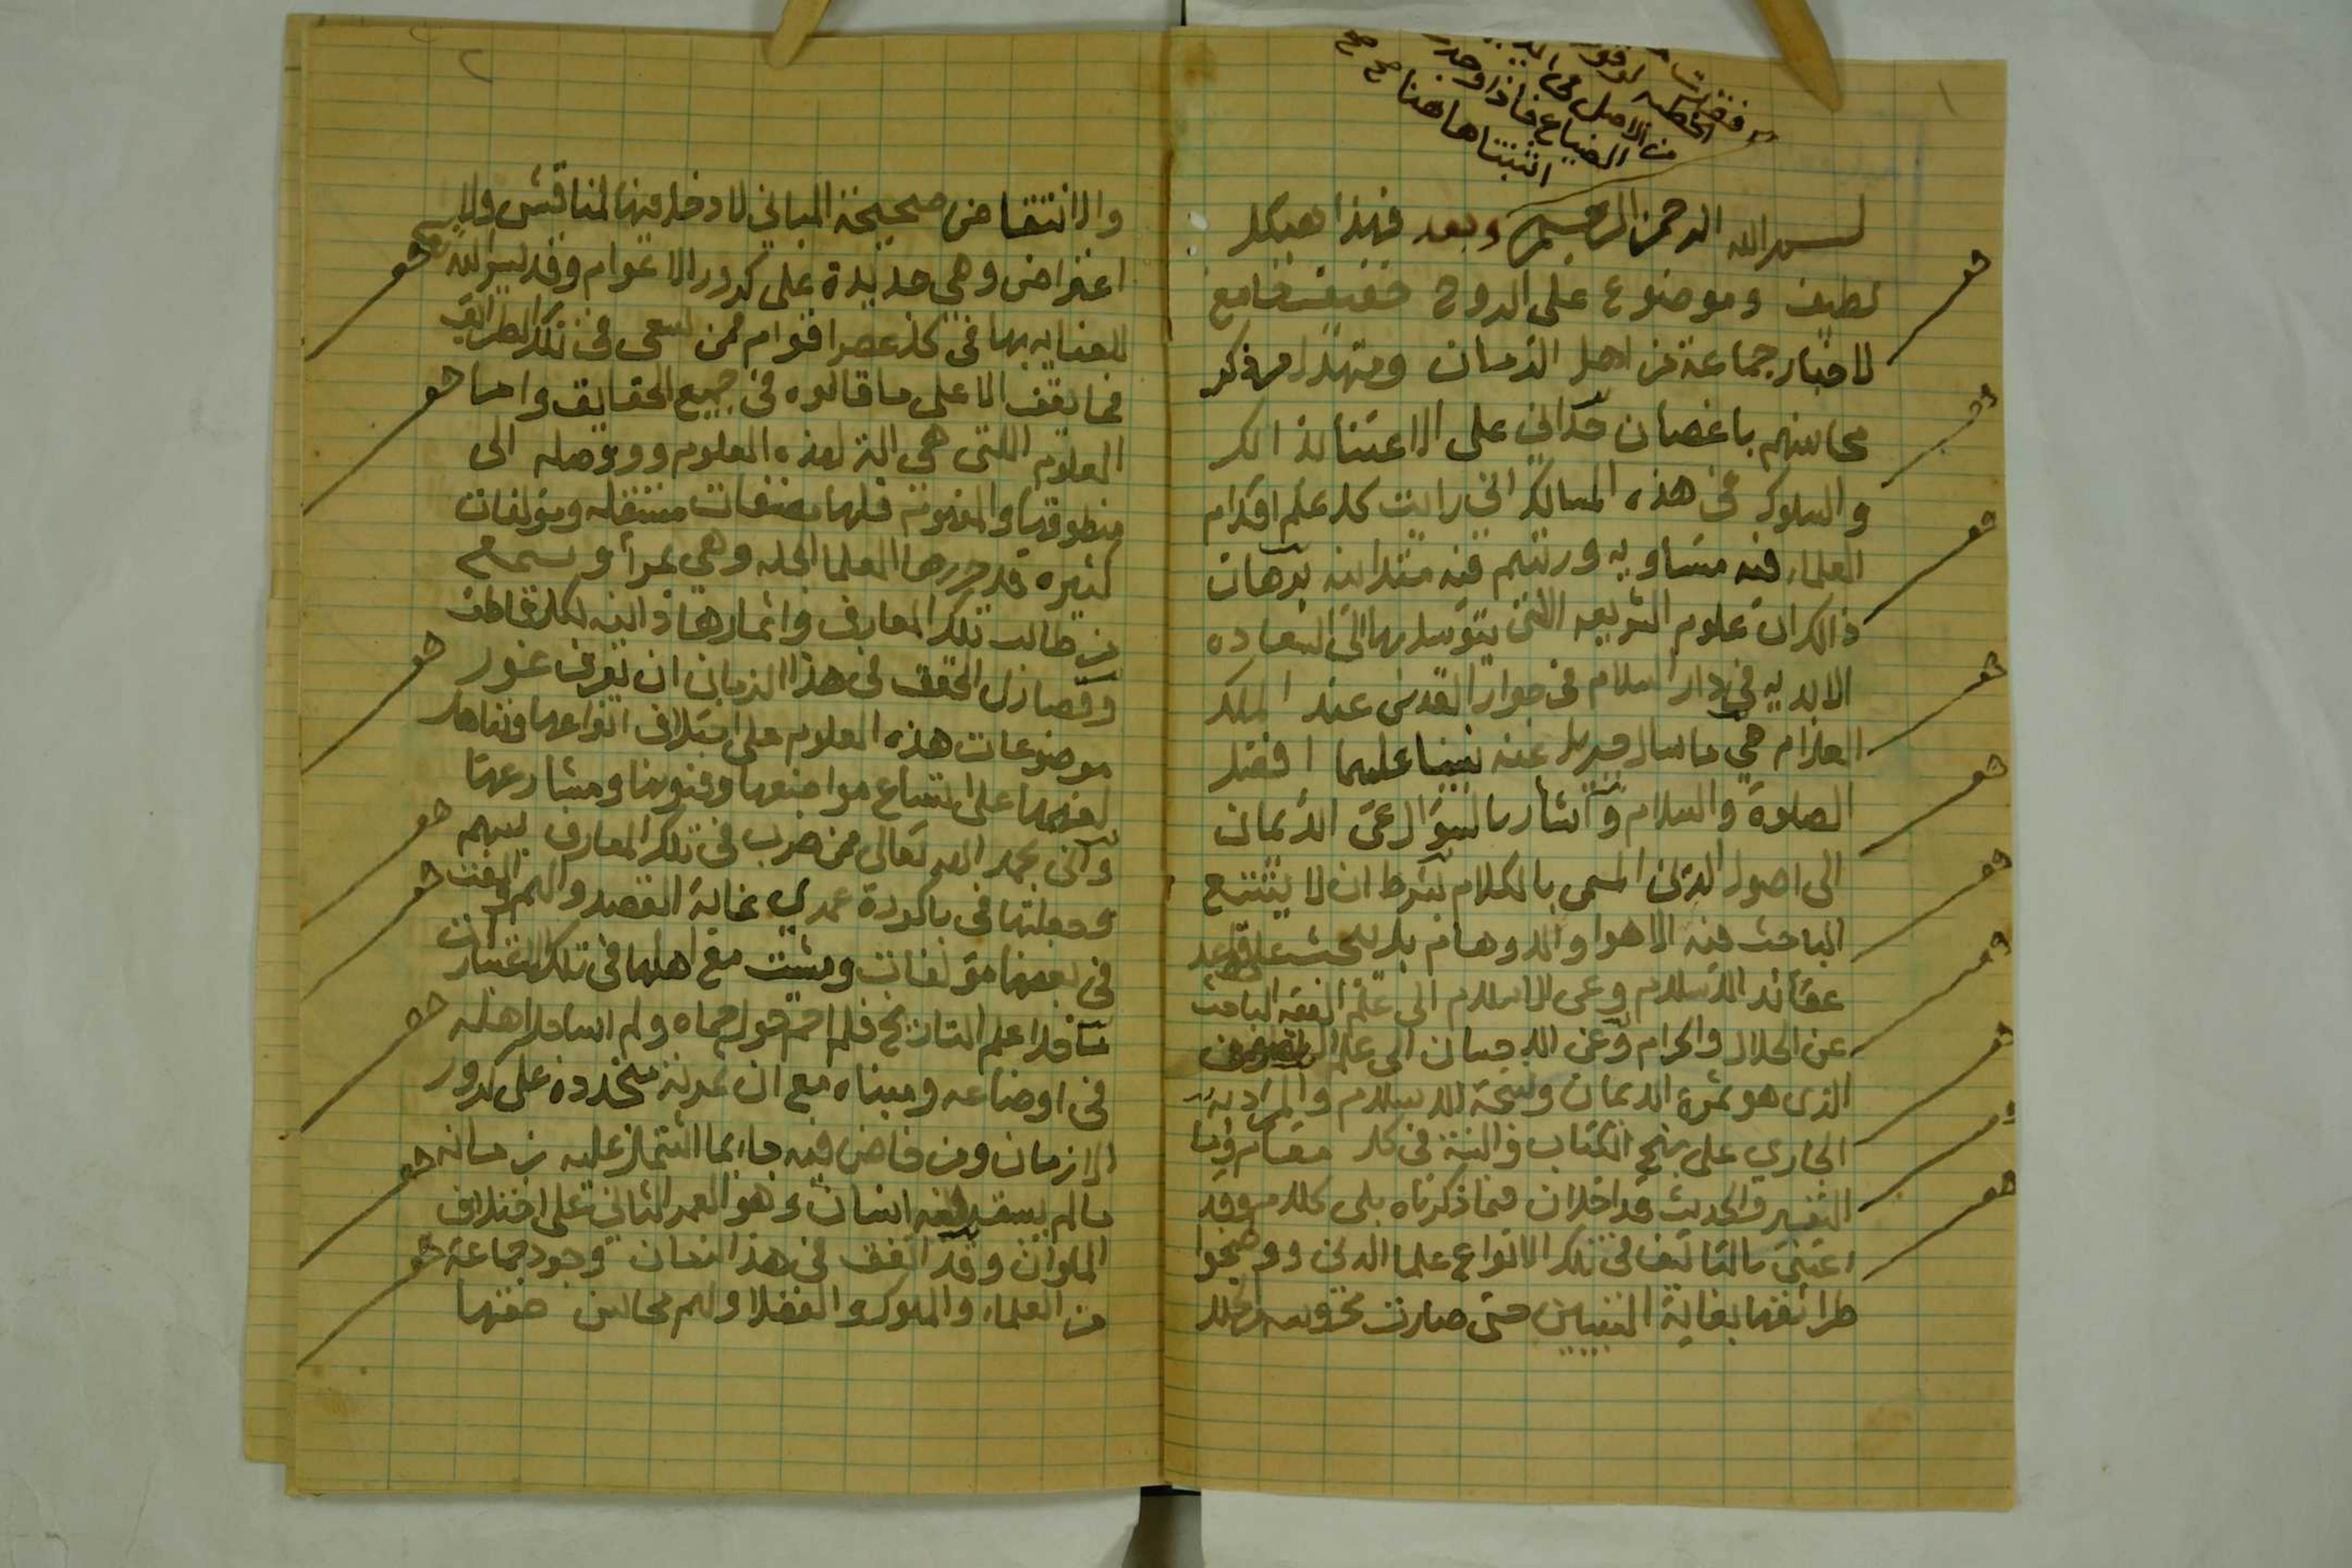 ١
الخطبه
من الاصل في
الضياع فاذا وجد
اثبتناها هنا صح صح
بسم الله الرحمن الرحيم وبعد فهذا هيكل
لطيف وموضوع على الروح خفيف جامع
لاخبار جماعة من اهل الزمان ومتهدل من ذكر
محاسنهم باغصان حداني على الاعتنا لذالك
والسلوك في هذه المسالك اني رايت كل علم اقدام
العلماء فيه متساويه ورتبتهم فيه متدانيه برهان
ذالك ان علوم الشريعه اللتي يتوسل بها الى السعاده
الابديه في دار السلام في جوار القدس عند الملك
العلام هي ما سال جبريل عنه نبينا عليهما افضل
الصلوة والسلام واشار بالسؤال عن الايمان
الى اصول الدين المسمى بالكلام بشرط ان لا يتتبع
الباحث فيه الاهوا والاوهام بل يبحث على قواعد
عقائد الاسلام وعن الاسلام الى علم الفقه الباحث
عن الحلال والحرام وعن الاحسان الى علم
الذي هو ثمرة الايمان ونتيجة للاسلام والمراد به
الجاري على نهج الكتاب والسنة في كل مقام واما
التفسير والحديث فداخلان فيما ذكرناه بلى كلام وقد
اعتنى بالتاليف في تلك الانواع علما الدين ووضحوا
طرائقها بغاية التبيين حتى صارت محروسه
٢
والانتقاض صحيحة المباني لا دخل فيها لمناقش ولا
اعتراض وهي جديدة على كرور الاعوام وقد يسر الله
للعنايه بها في كل عصر اقوام فمن يسعى في تلك الطرائق
فما يقف الا على ما قالوه في جميع الحقايق واما
العلوم اللتي هي الة لهذه العلوم ووصله الى
منطوقها والمفهوم فلها مصنفات مستقله ومؤلفات
كثيره قد حررها العلما الجله وهي بمرأ ومسمع
من طالب تلك المعارف واثمارها دانيه لكل قاطف
وقصارى المحقق في هذا الزمان ان يعرف غور
موضوعات هذه العلوم على اختلاف انواعها
لفهمها على اتساع مواضعها وفنونها ومشارعها
واني بحمد الله تعالى ممن ضرب في تلك المعارف بسهم
وجعلتها في باكورة عمري غاية القصد والهم والفت
في بعضها مؤلفات ومشيت مع اهلها في تلك
ما خلا علم التاريخ فلم احم حول حماه ولم اساجل اهله
في اوضاعه ومبناه مع ان ثمرته متجدده على كرور
الازمان ومن خاض فيه جا بما اشتمل عليه زمانه
مالم يسبقه اليه انسان وهو العمر الثاني على اختلاف
الملوان وقد اتفق في هذا الزمان وجود جماعة
من العلماء والملوك والفضلا ولهم محاسن حقها